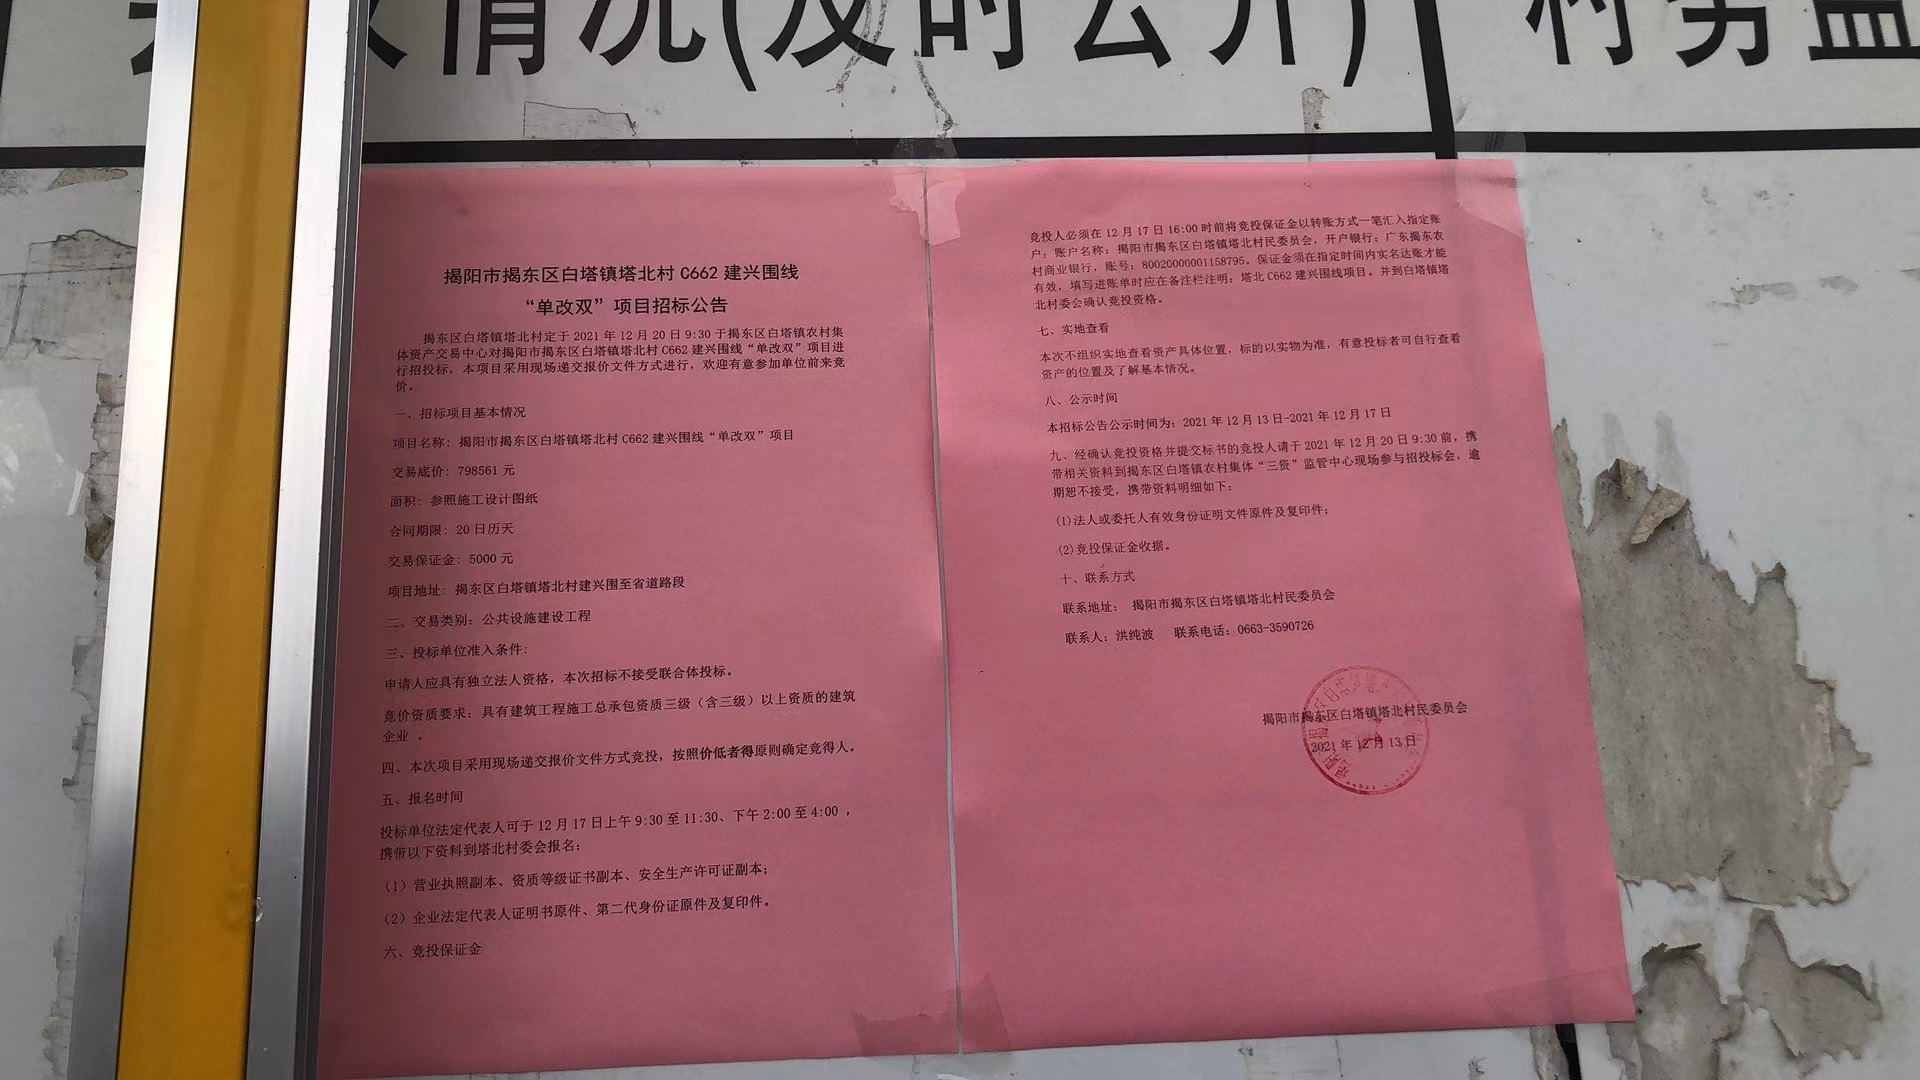 情况(及时公开)
村务监
揭阳市揭东区白塔镇塔北村 C662 建兴围线
“单改双”项目招标公告
揭东区白塔镇塔北村定于 2021 年 12 月 20 日 9:30 于揭东区白塔镇农村集
体资产交易中心对揭阳市揭东区白塔镇塔北村 C662 建兴围线“单改双”项目进
行招投标，本项目采用现场递交报价文件方式进行，欢迎有意参加单位前来竞
价。
一、招标项目基本情况
项目名称: 揭阳市揭东区白塔镇塔北村 C662 建兴围线“单改双”项目
交易底价: 798561 元
面积: 参照施工设计图纸
合同期限: 20 日历天
交易保证金: 5000 元
项目地址: 揭东区白塔镇塔北村建兴围至省道路段
二、交易类别: 公共设施建设工程
三、投标单位准入条件:
申请人应具有独立法人资格，本次招标不接受联合体投标。
竞价资质要求: 具有建筑工程施工总承包资质三级（含三级）以上资质的建筑
企业 。
四、本次项目采用现场递交报价文件方式竞投，按照价低者得原则确定竞得人。
五、报名时间
投标单位法定代表人可于 12 月 17 日上午 9:30 至 11:30、下午 2:00 至 4:00 ，
携带以下资料到塔北村委会报名:
（1）营业执照副本、资质等级证书副本、安全生产许可证副本;
（2）企业法定代表人证明书原件、第二代身份证原件及复印件。
六、竞投保证金
竞投人必须在 12 月 17 日 16:00 时前将竞投保证金以转账方式一笔汇入指定账
户: 账户名称: 揭阳市揭东区白塔镇塔北村民委员会，开户银行: 广东揭东农
村商业银行，账号: 80020000001158795。保证金须在指定时间内实名达账才能
有效，填写进账单时应在备注栏注明: 塔北 C662 建兴围线项目。并到白塔镇塔
北村委会确认竞投资格。
七、实地查看
本次不组织实地查看资产具体位置，标的以实物为准，有意投标者可自行查看
资产的位置及了解基本情况。
八、公示时间
本招标公告公示时间为: 2021 年 12 月 13 日-2021 年 12 月 17 日
九、经确认竞投资格并提交标书的竞投人请于 2021 年 12 月 20 日 9:30 前，携
带相关资料到揭东区白塔镇农村集体“三资”监管中心现场参与招投标会，逾
期恕不接受，携带资料明细如下:
(1)法人或委托人有效身份证明文件原件及复印件;
(2)竞投保证金收据。
十、联系方式
联系地址: 揭阳市揭东区白塔镇塔北村民委员会
联系人: 洪纯波 联系电话: 0663-3590726
揭阳市揭东区白塔镇塔北村民委员会
2021 年 12 月 13 日